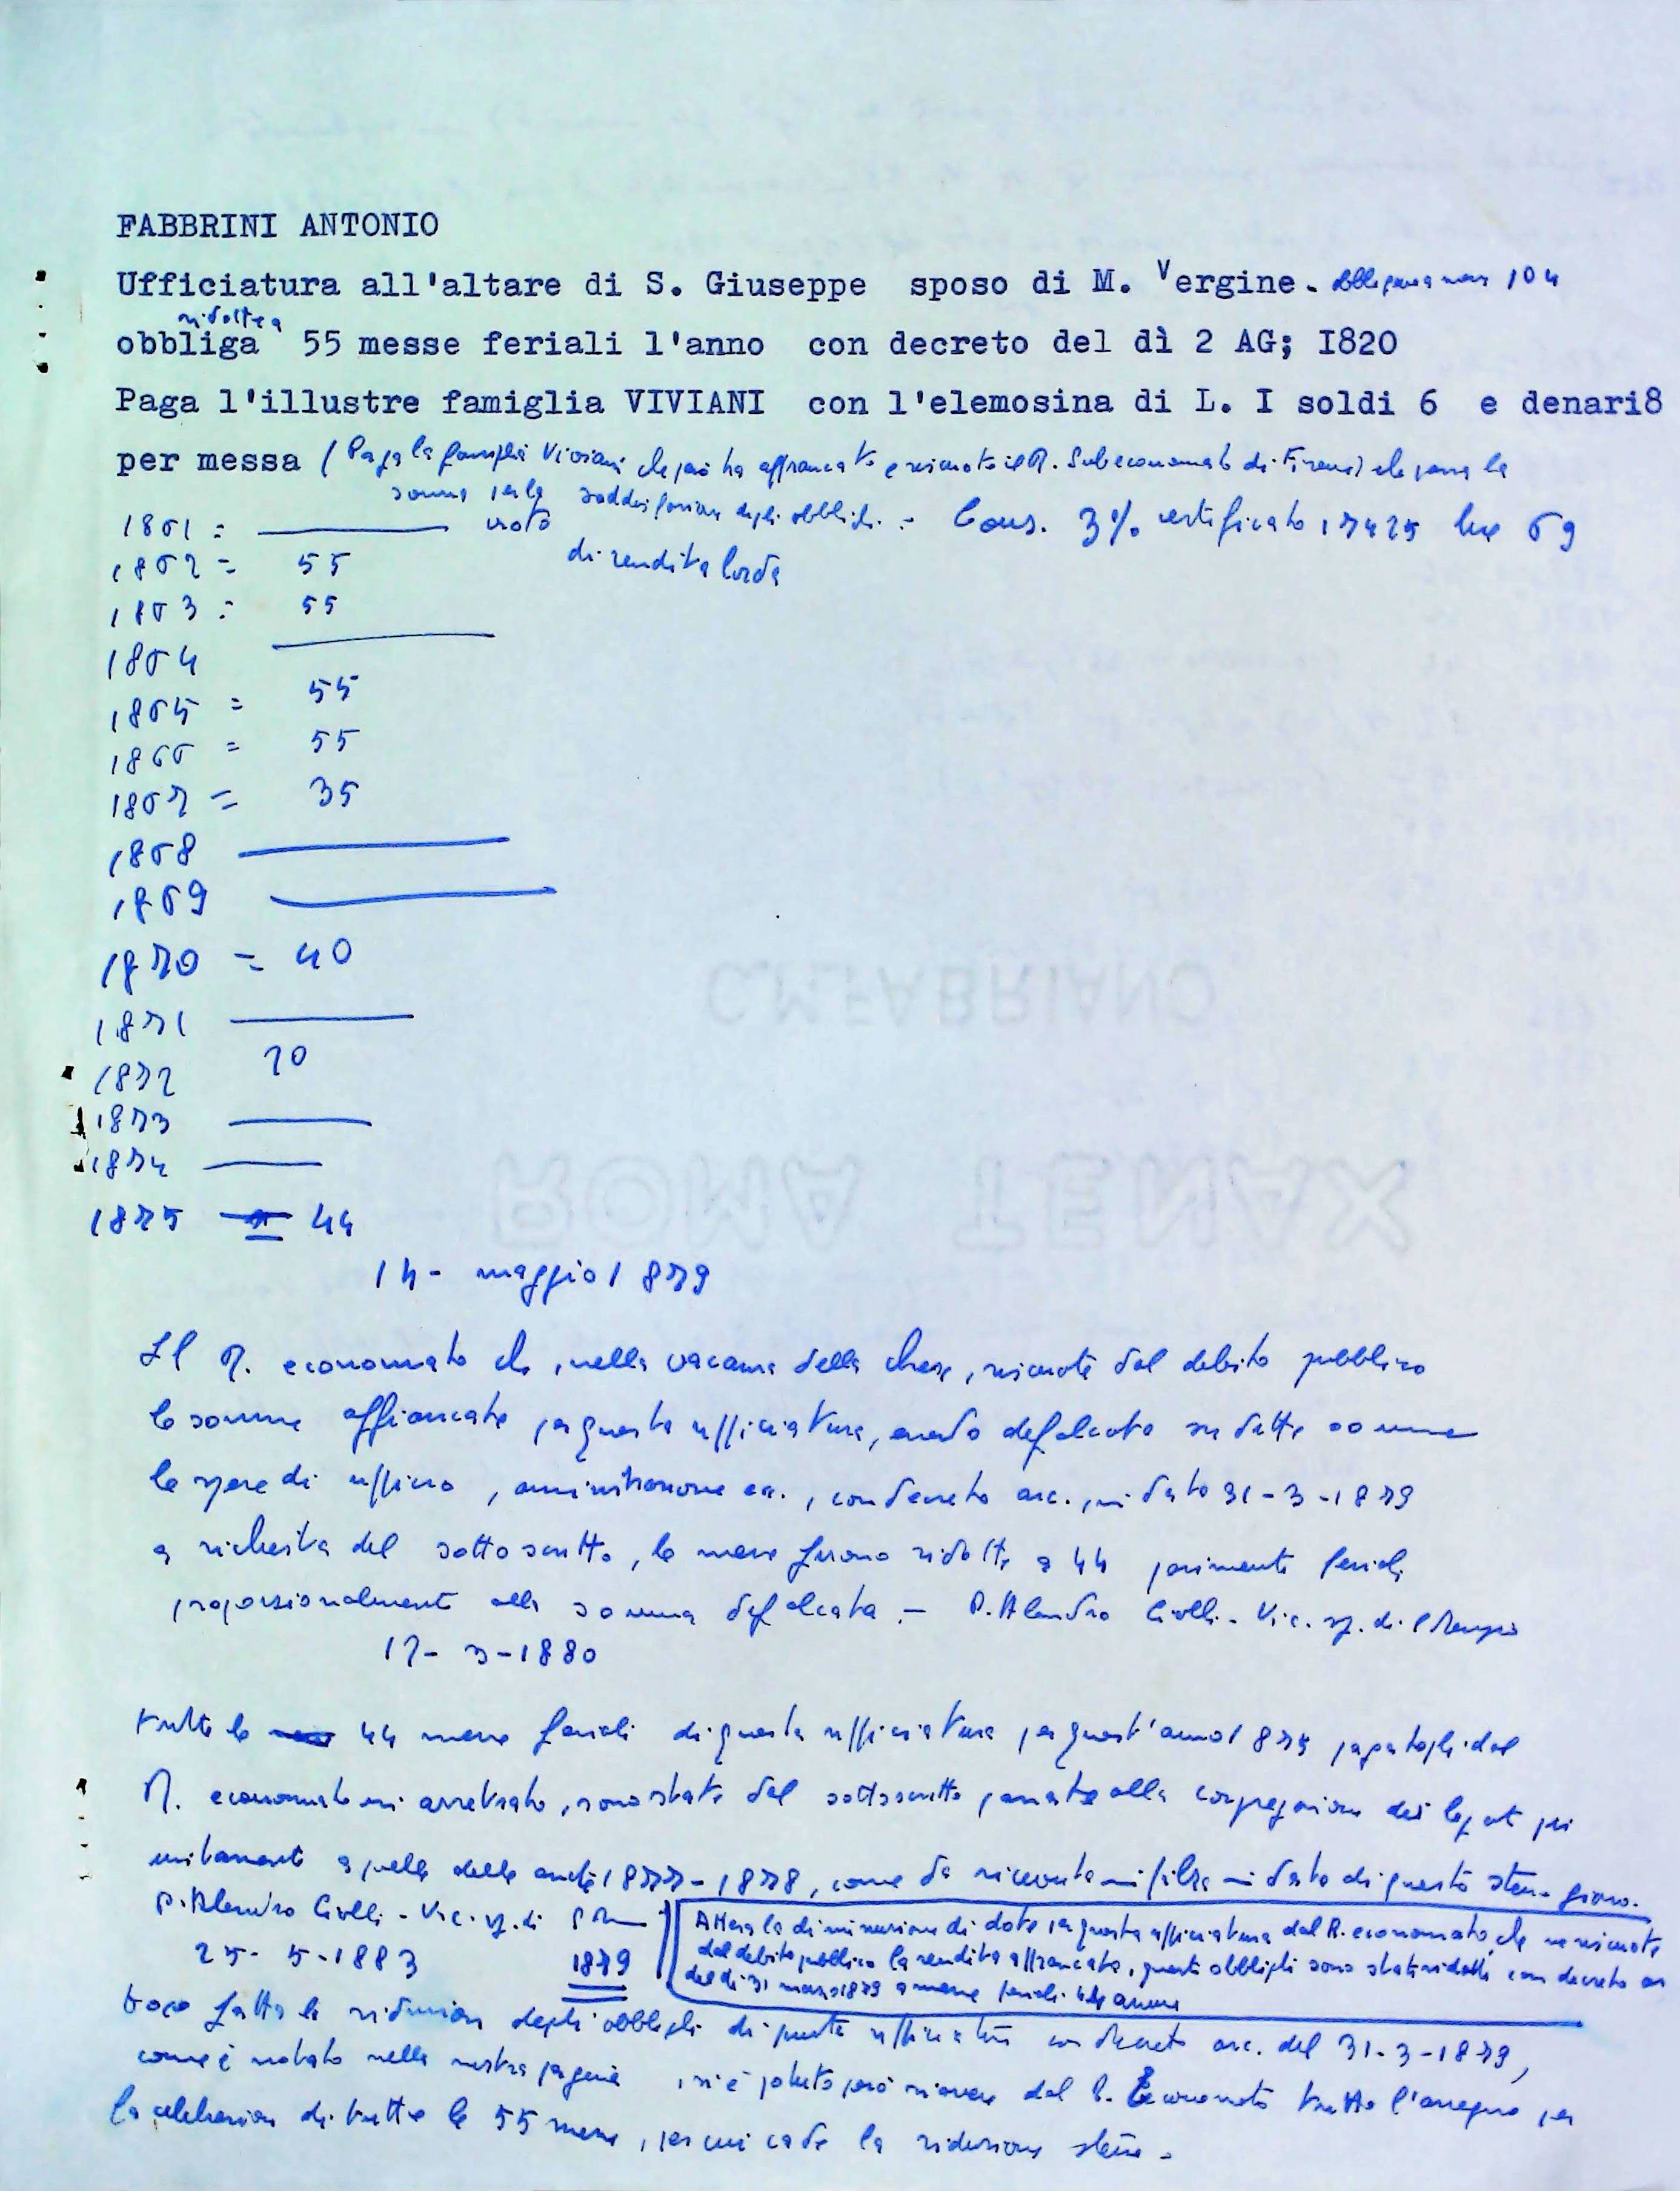 FABBRINI ANTONIO
Ufficiatura all'altare di S. Giuseppe sposo di M. Vergine. 104
ridotte a
obbliga 55 messe feriali l'anno con decreto del dì 2 AG; I820
Paga l'illustre famiglia VIVIANI con l'elemosina di L. I soldi 6 e denari8
per messa (Paga la famiglia Viviani che però ha affrancato e riscuote il R. Subeconomato di Firenze) che passa la
somma per la soddisfazione degli obblighi. - Cons. 3% certificato 17425 lire 69
1861 = vuoto
di rendita lorda
1862 = 55
1863 = 55
1864
1865 = 55
1866 = 55
1867 = 35
1868
1869
1870 = 40
1871
1872 20
1873
1874
1875 = 44
14 - maggio 1879
Il R. economato che, nella vacanza della chiesa, riscuote dal debito pubblico
le somme affrancate per questa ufficiatura, avendo defalcato su dette somme
le spese di ufficio, amministrazione ec., con decreto arc., in data 31-3-1879
a richiesta del sottoscritto, le messe furono ridotte a 44 parimente feriali
proporzionalmente alla somma defalcata. - P. Alessandro Ciolli - Vic. sp. di
17-3-1880
tutte le 44 messe feriali di questa ufficiatura per quest'anno 1879 pagategli dal
R. economato in arretrato, sono state dal sottoscritto passate alla congregazione dei legati pii
unitamente a quelle delle 1877-1878, come da ricevuta in filza in data di questo stesso giorno.
P. Alessandro Ciolli - Vic. sp. di
Attesa la diminuzione di dote per questa ufficiatura dal R. economato, che ne riscuote
dal debito pubblico la rendita affrancata, questi obblighi sono stati ridotti con decreto
del dì 31 marzo 1879 a messe feriali 44 annue
25-5-1883 1879
fatta la riduzione degli obblighi di questa ufficiatura con decreto arc. del 31-3-1879,
come è notato nella nostra pagina, si è potuto però riavere dal R. Economato tutto l'assegno per
la celebrazione di tutte le 55 messe, per cui cade la riduzione stessa.
C.M.FABRIANO
ROMA TENAX